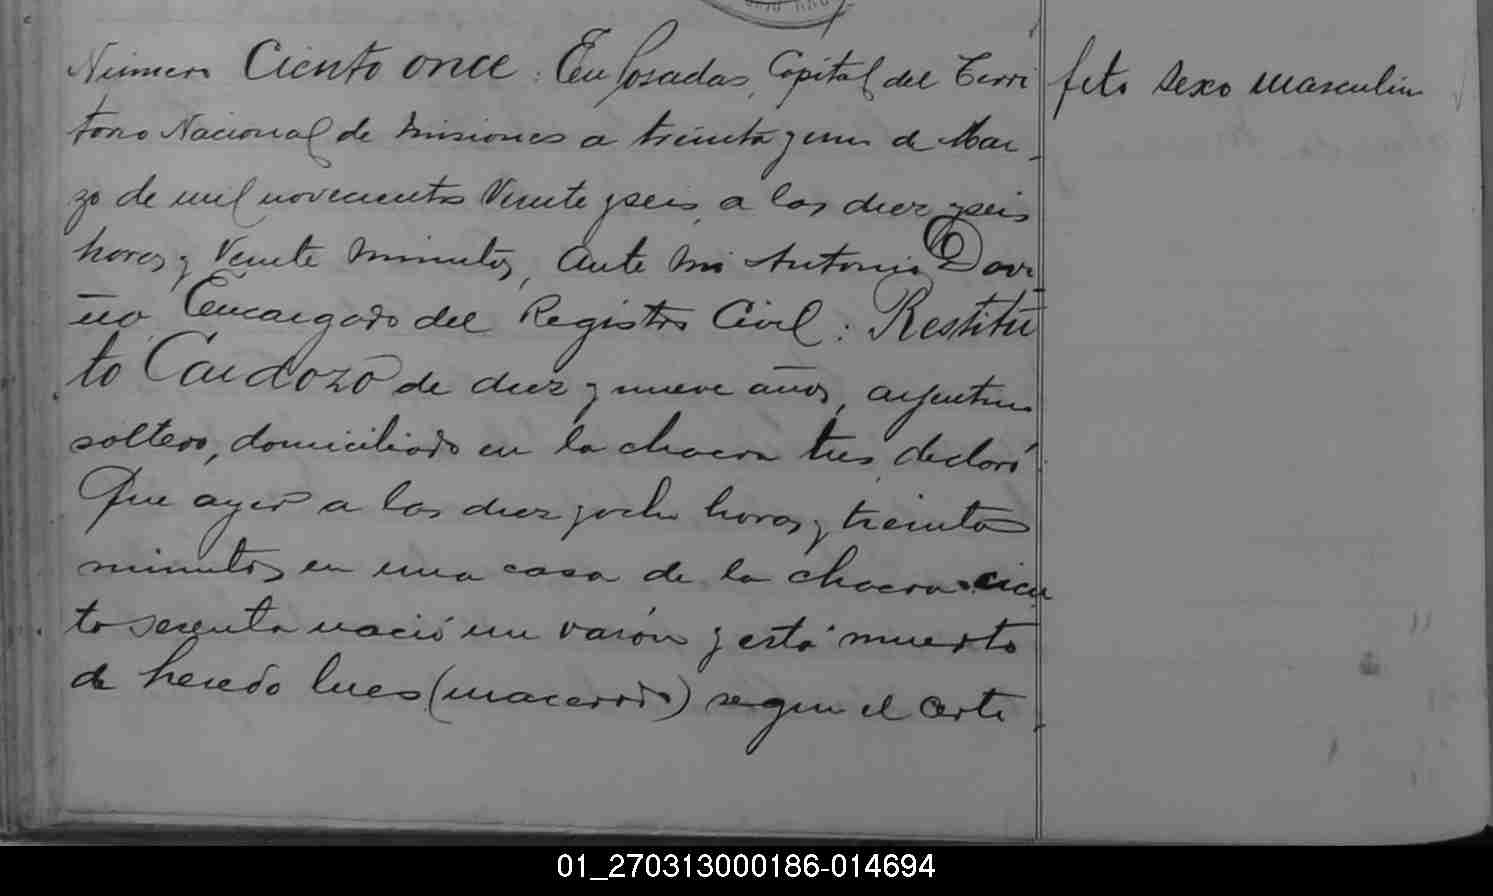 Número Ciento once: En Posadas, Capital del Terri
torio Nacional de Misiones a treinta y uno de Mar-
zo de mil novecientos Veinte y seis, a las diez y seis
horas y Veinte minutos, ante mi Antonio Davi
ño Encargado del Registro Civil: Restitu
to Cardozo de diez y nueve años, argentino
soltero, domiciliado en la chacra tres, declaró
Que ayer a las diez y ocho horas y treinta
minutos en una casa de la chacra cien
to sesenta nació un varón y está muerto
de heredo lues (macerado) segun el certi
feto sexo masculino
01_270313000186-014694